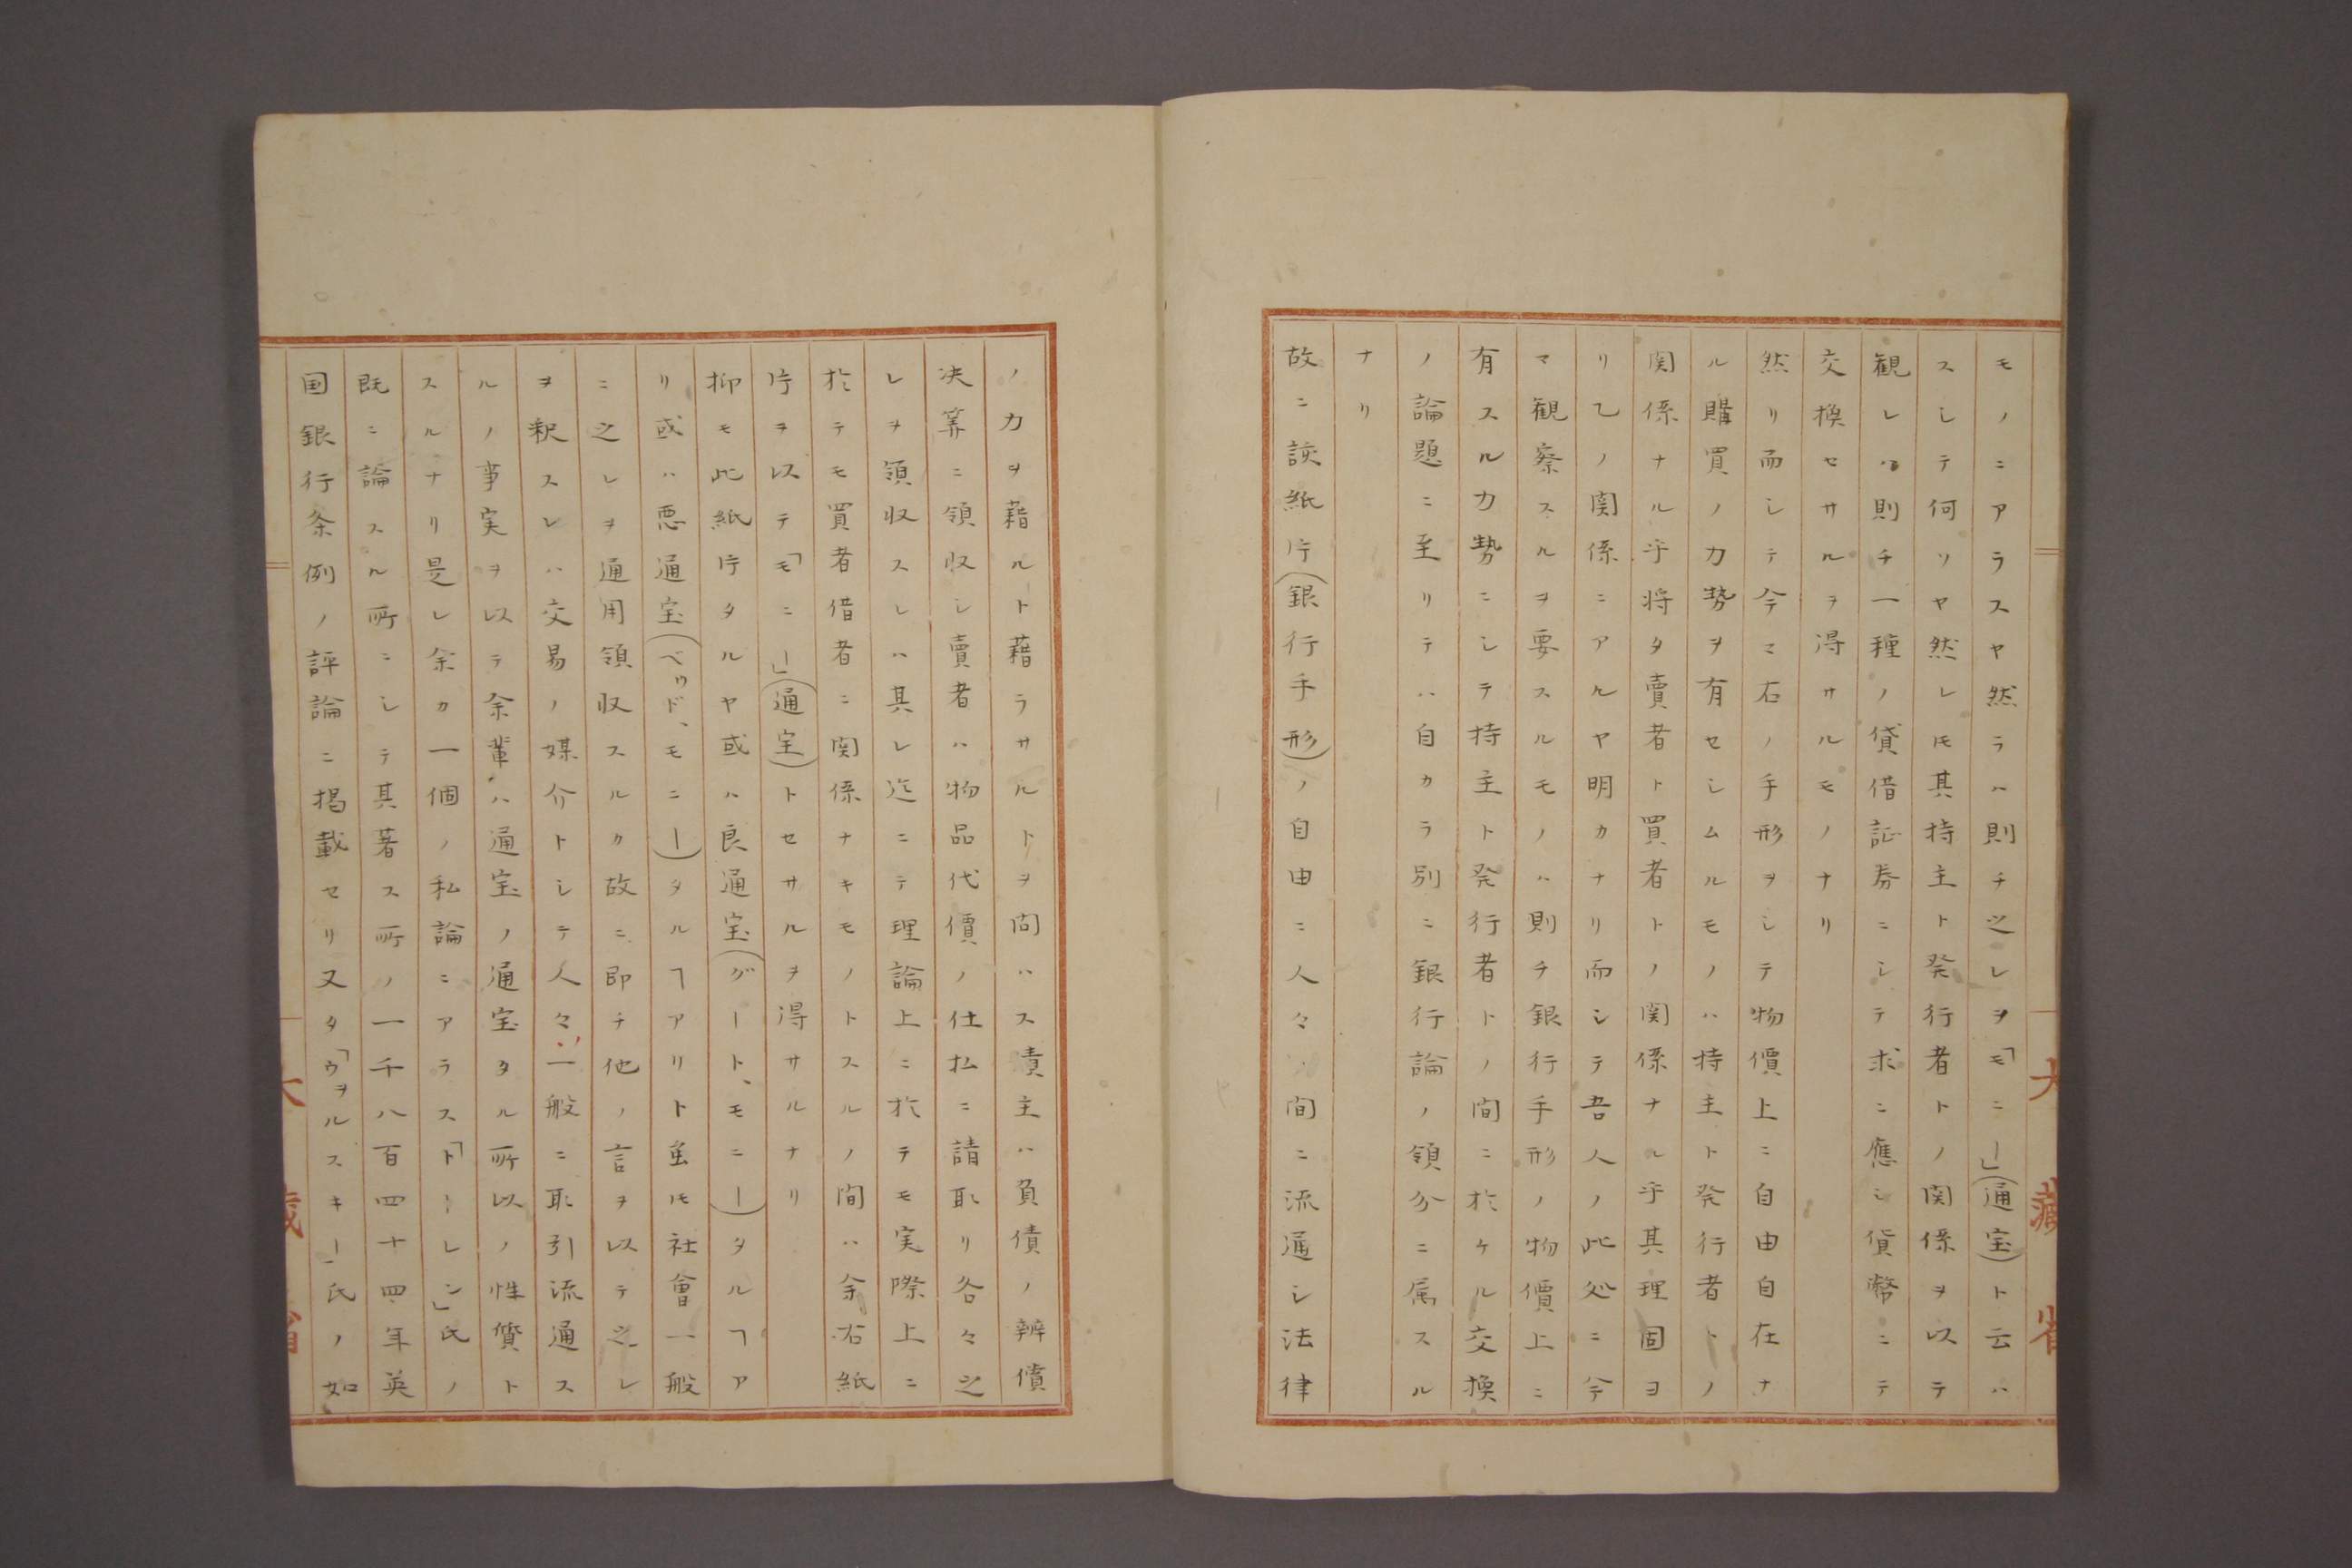 モノニアラスヤ然ラハ則チ之レヲ「モニー」(通宝)ト云ハ
スシテ何ソヤ然レ𪜈其持主ト発行者トノ関係ヲ以テ
観レハ則チ一種ノ貸借証券ニシテ求ニ應シ貨幣ニテ
交換セサルヲ得サルモノナリ
然リ而シテ今マ右ノ手形ヲシテ物價上ニ自由自在ナ
ル購買ノ力勢ヲ有セシムルモノハ持主ト発行者トノ
関係ナル乎将タ賣者ト買者トノ関係ナル乎其理固ヨ
リ乙ノ関係ニアルヤ明カナリ而シテ吾人ノ此処ニ今
マ観察スルヲ要スルモノハ則チ銀行手形ノ物價上ニ
有スル力勢ニシテ持主ト発行者トノ間ニ於ケル交換
ノ論題ニ至リテハ自カラ別ニ銀行論ノ領分ニ属スル
ナリ
故ニ該紙片(銀行手形)ノ自由ニ人々ノ間ニ流通シ法律
ノ力ヲ藉ルト藉ラサルトヲ問ハス責主ハ負債ノ辨償
决算ニ領収シ賣者ハ物品代價ノ仕払ニ請取リ各々之
レヲ領収スレハ其レ迄ニテ理論上ニ於テモ実際上ニ
於テモ買者借者ニ関係ナキモノトスルノ間ハ余右紙
片ヲ以テ「モニー」(通宝)トセサルヲ得サルナリ
抑モ此紙片タルヤ或ハ良通宝(グート、モニー)タルヿア
リ或ハ悪通宝(ベッド、モニー)タルヿアリト虽𪜈社會一般
ニ之レヲ通用領収スルカ故ニ即チ他ノ言ヲ以テ之レ
ヲ釈スレハ交易ノ媒介トシテ人々一般ニ取引流通ス
ルノ事実ヲ以テ余輩ハ通宝ノ通宝タル所以ノ性質ト
スルナリ是レ余カ一個ノ私論ニアラス「トーレン」氏ノ
既ニ論スル所ニシテ其著ス所ノ一千八百四十四年英
国銀行条例ノ評論ニ掲載セリ又タ「ウヲルスキー」氏ノ如
大藏省